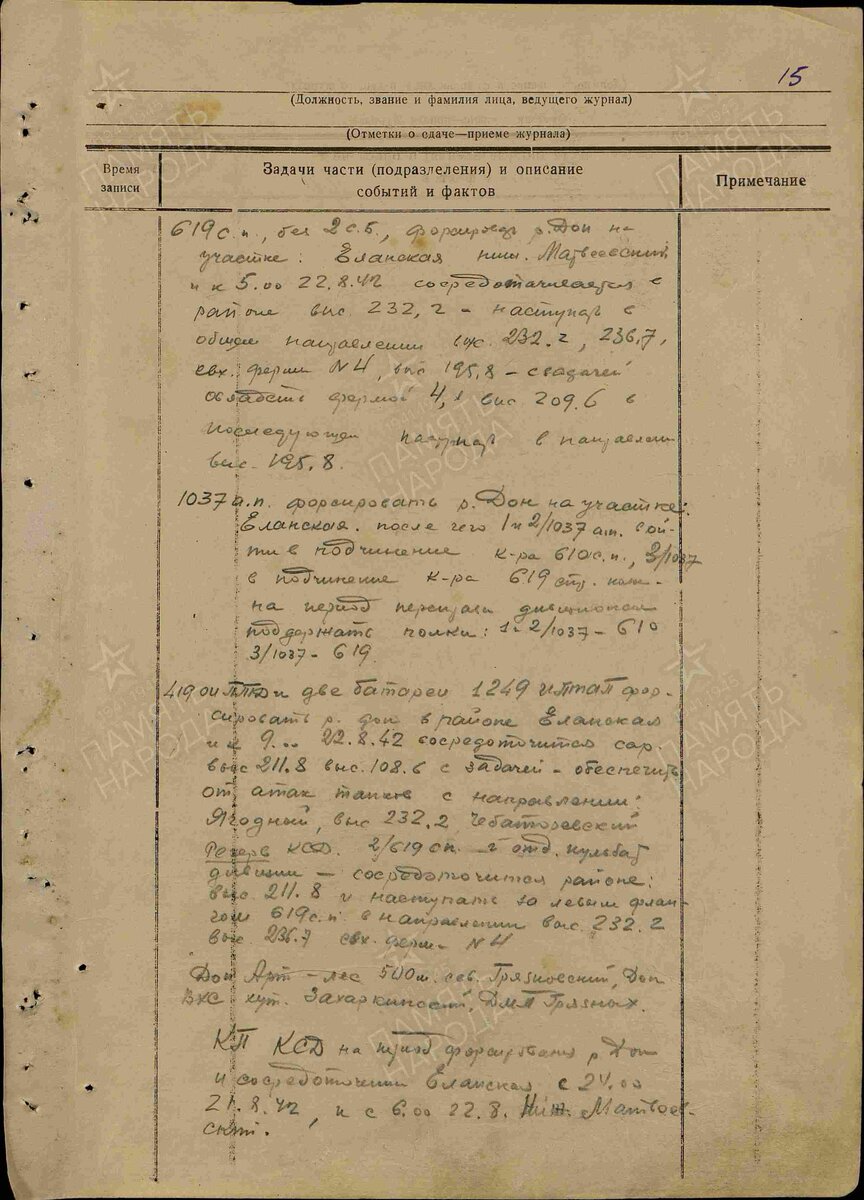 15
(Должность, звание и фамилия лица, ведущего журнал)
(Отметки о сдаче—приеме журнала)
Время записи
Задачи части (подразделения) и описание событий и фактов
Примечание
619 с.п., без 2 с.б., форсирует р. Дон на
участке: Еланская ниж. Матвеевский
и к 5.00 22.8.42 сосредотачивается в
районе выс. 232,2 – наступать в
общем направлении выс. 232.2, 236,7,
свх. ферм N4, выс 195,8 – с задачей
овладеть фермой 4, выс 209.6 в
последующем наступать в направлен
выс. 195.8.
1037 а.п. форсировать р. Дон на участке:
Еланская. после чего 1 и 2/1037 а.п. вой-
ти в подчинение к-ра 610 с.п., 3/1037
в подчинение к-ра 619 стр. полк.
на период переправы дивизионам
поддержать полки: 1 и 2/1037 – 610
3/1037 – 619.
419 оиптд и две батареи 1249 иптап фор-
сировать р. Дон в районе Еланская
и к 9.00 22.8.42 сосредоточится
выс 211.8 выс. 108.6 с задачей – обеспечить
от атак танков с направлений:
Ягодный, выс 232.2 Чеботаревский
Резерв КСД. 2/619 сп. отд. пульбат
дивизии – сосредоточится районе:
выс. 211.8 и наступать за левым флан-
гом 619 с.п. в направлении выс. 232.2
выс. 236.7 свх. ферм– N4
Доп Арт – лес 500 м. сев. Грязновский, Доп
ВХС хут. Захаркинский, ДМП Грязных.
КП КСД на период форсирования р Дон
и сосредоточении Еланская с 24.00
21.8.42, и с 6.00 22.8. Ниж. Матвеев-
ский.
ПАМЯТЬ НАРОДА